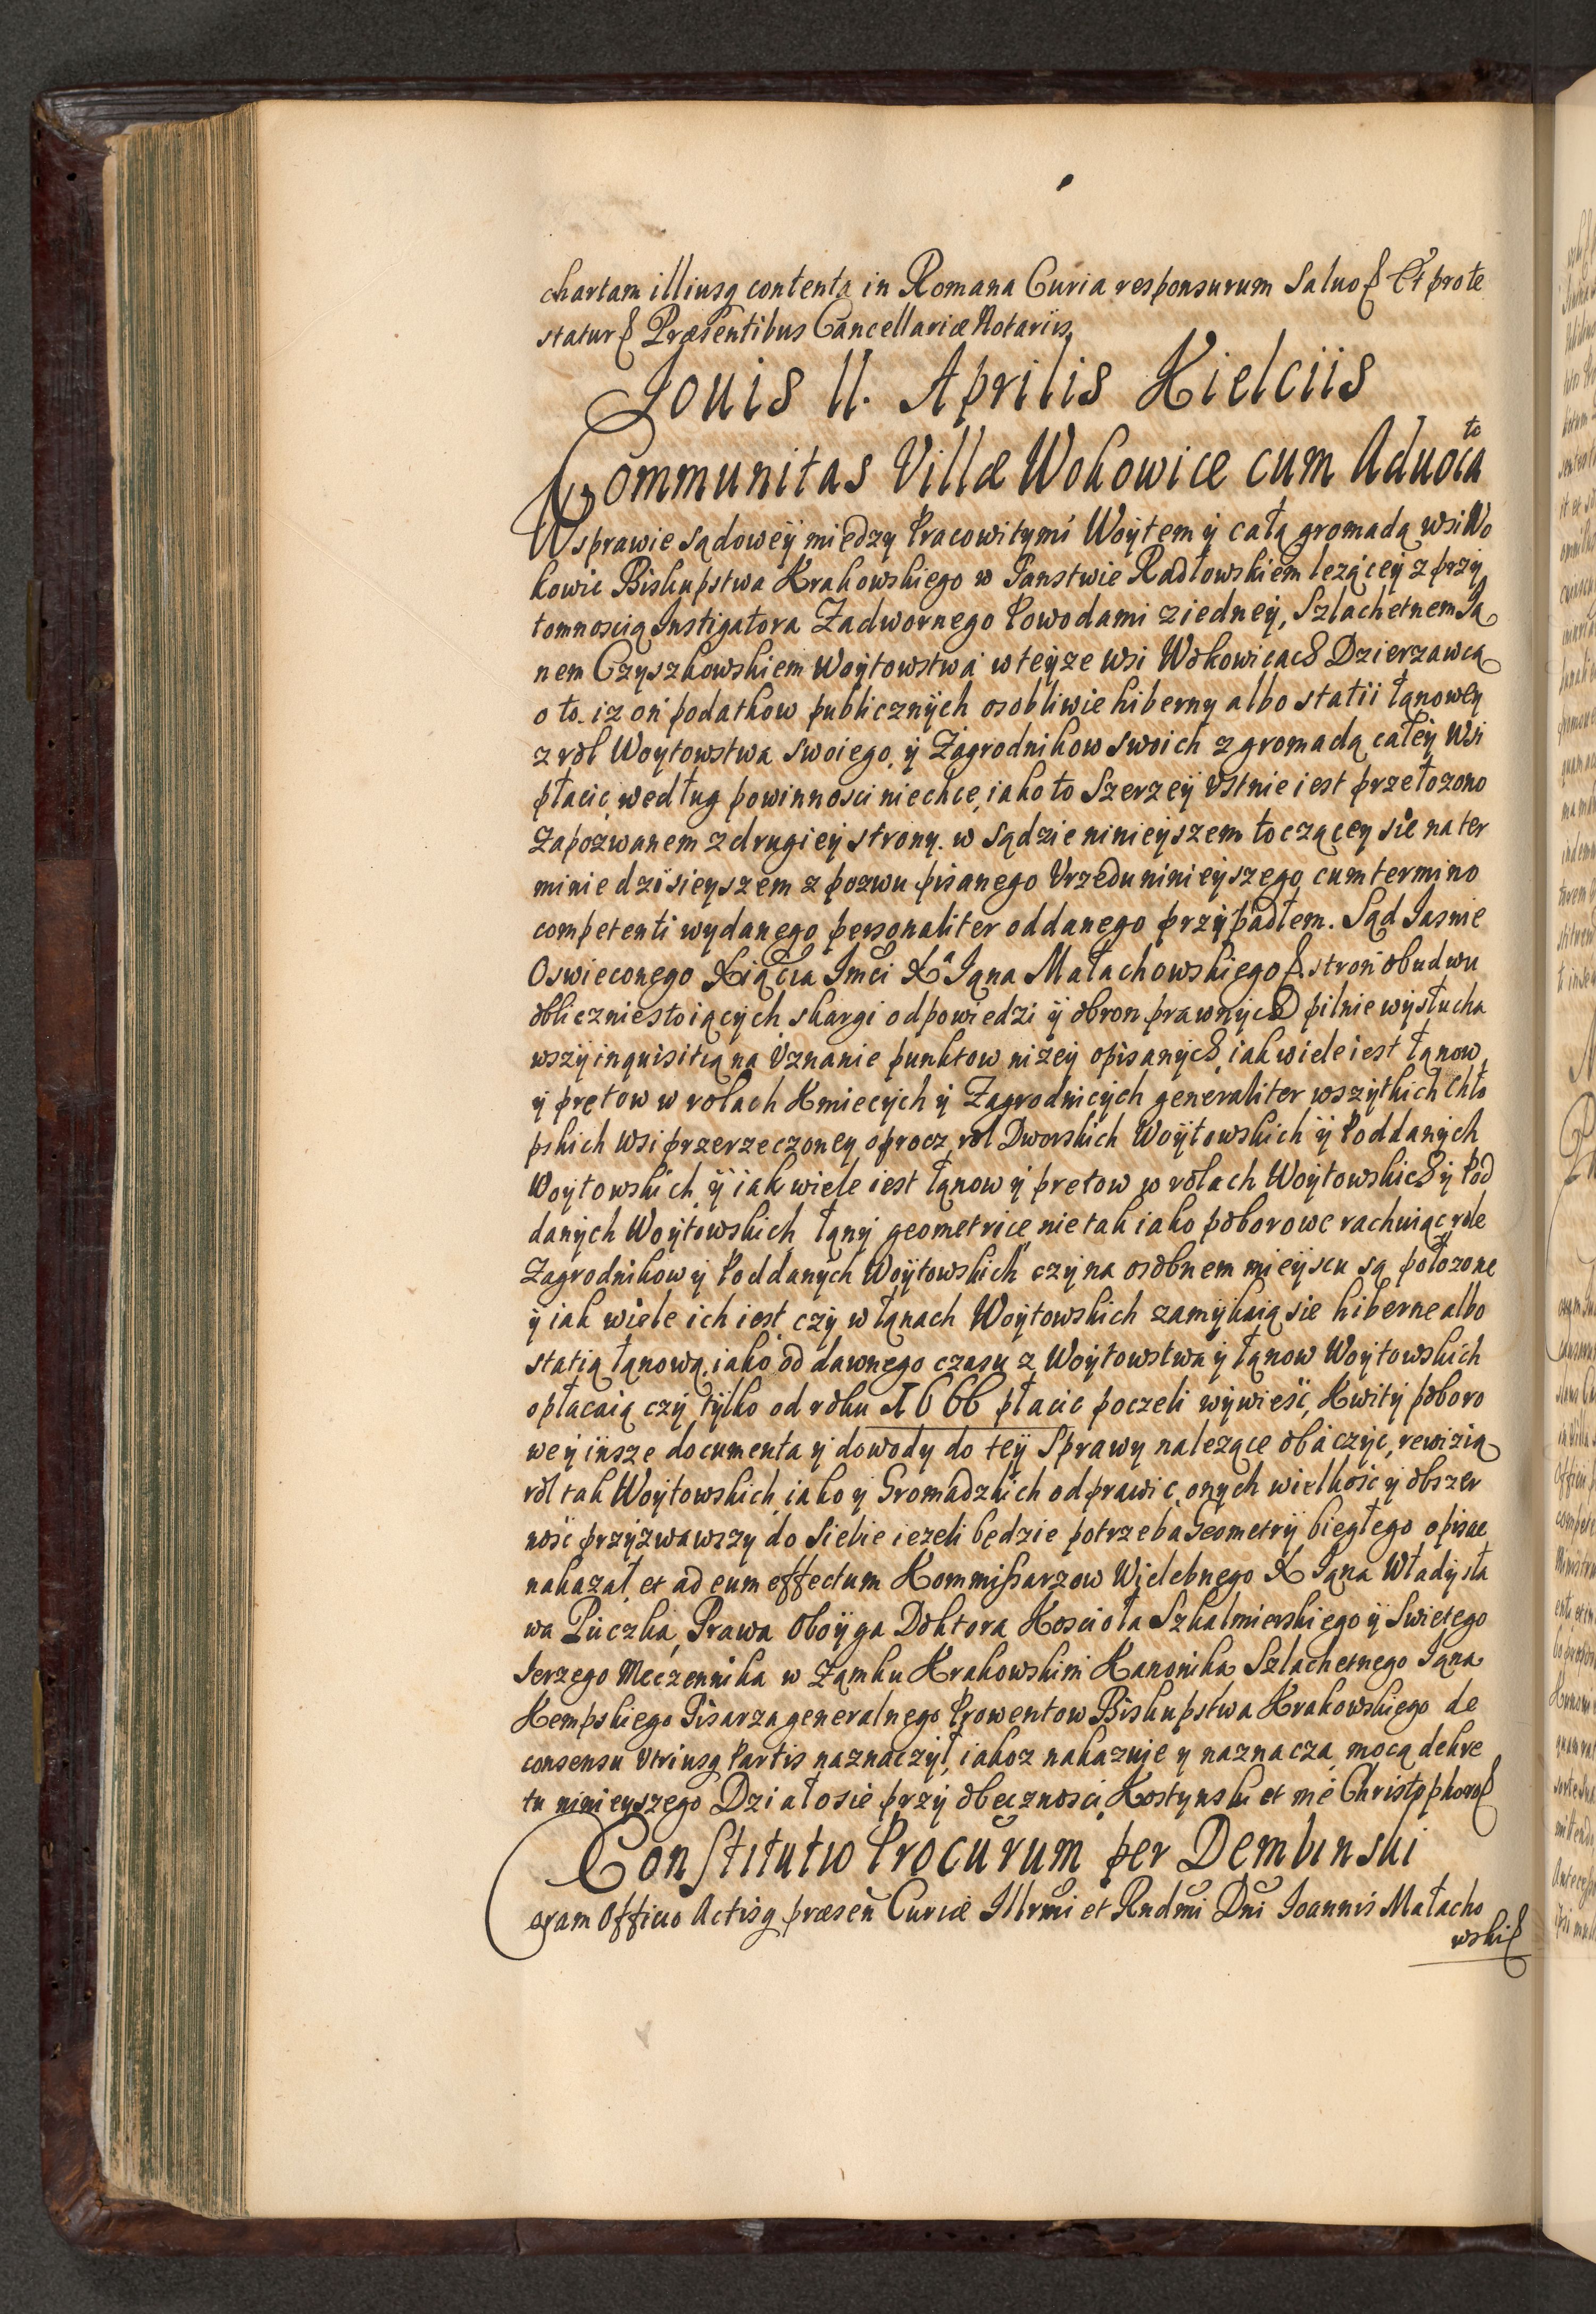 chartam illiusq contenta in Romana Curia responsurum Saluo & Et prote
statur & Præsentibus Cancellariæ Notariis
Jouis 11. Aprilis Kielciis
Communitas Villæ Wokowice cum Aduoca to
W sprawie sądoweÿ między Pracowitymi Woÿtem ÿ całą gromadą wsi Wo
kowic Biskupstwa Krakowskiego w Panstwie Radłowskiem lezącey z przÿ
tomnoscią Instigatora Zadwornego Powodami z iedneÿ, Szlachetnem Ja
nem Czyszkowskiem Woÿtowstwa w teÿze wsi Wokowicach Dzierzawcą
o to. iz on podatkow publicznÿch osobliwie hiberny albo statii łanoweÿ
z rol Woytowstwa swoiego, ÿ Zagrodnikow swoich z gromadą całeÿ wsi
płacic, według powinnosci niechce, iako to Szerzeÿ Vstnie iest przełozono
Zapozwanem z drugieÿ strony. w sądzie ninieÿszem toczącey sie na ter
minie dzisieyszem z pozwu pisanego Vrzedu ninieÿszego cum termino
competenti wydanego personaliter oddanego przÿpadłem. Sąd Jasnie
Oswieconego Xiącia Jmci Xa Jana Małachowskiego & stron obudwu
obliczniestoiącÿch skargi odpowiedzi ÿ obron prawnÿch pilnie wÿsłucha
wszÿ inquisitią na Vznanie punktow nizeÿ opisanÿch, iak wiele iest łanow
ÿ prętow w rolach Kmiecÿch ÿ Zagrodnicÿch generaliter wszÿtkich Chło
pskich wsi przerzeczoney oprocz rol Dworskich Woÿtowskich ÿ Poddanÿch
Woÿtowskich ÿ iak wiele iest łanow ÿ pretow w rolach Woÿtowskich ÿ Pod
danÿch Woÿtowskich łanÿ geometrice nie tak iako poborowe rachuiąc role
Zagrodnikow ÿ Poddanÿch Woÿtowskich czÿ na osobnem mieÿscu są położone
ÿ iak wiele ich iest czÿ w łanach Woÿtowskich zamÿkaią sie hiberne albo
statią łanową, iako od dawnego czasu z Woÿtowstwa ÿ łanow Woÿtowskich
opłacaią czÿ tÿlko od roku 1666 płacic poczeli wÿwieść, Kwitÿ poboro
we ÿ insze documenta ÿ dowody do teÿ Sprawy nalezące obaczÿc, rewizią
rol tak Woÿtowskich, iako ÿ Gromadzkich odprawic, onych wielkość ÿ obszer
ność przÿzwawszy do siebie iezeli będzie potrzeba Geometrÿ biegłego opisac
nakazał et ad eum effectum Kommissarzow Wielebnego X Jana Władysła
wa Puczka, Prawa Oboÿga Doktora Koscioła Szkalmierskiego ÿ Swietego
Jerzego Męczennika w zamku Krakowskim Kanonika Szlachetnego Jana
Kempskiego Pisarza generalnego Prowentow Biskupstwa Krakowskiego de
consensu Vtriusq Partis naznaczÿł, iakoz nakazuje y naznacza, mocą dekre
tu ninieyszego Działosie przÿ obecznosci Kostynski et me Christophoro &
Constitutio Procurum per Dembinski
Coram Officio Actisq præsen Curiæ Illrmi et Rndmi Dni Joannis Małacho
wski &